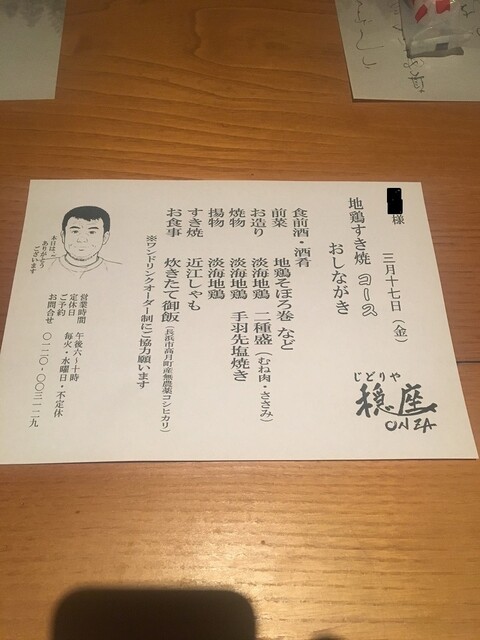 様
三月十七日（金）
地鶏すき焼 コース
おしながき
じどりや
穏座
ONZA
食前酒・酒肴
前菜 地鶏そぼろ巻 など
お造り 淡海地鶏 二種盛（むね肉・ささみ）
焼物 淡海地鶏 手羽先塩焼き
揚物 淡海地鶏
すき焼 近江しゃも
お食事 炊きたて御飯（長浜市高月町産無農薬コシヒカリ）
※ワンドリンクオーダー制にご協力願います
営業時間 午後六〜十時
定休日 毎火・水曜日・不定休
ご予約
お問合せ 〇一二〇-〇〇三一二九
本日は
ありがとう
ございます